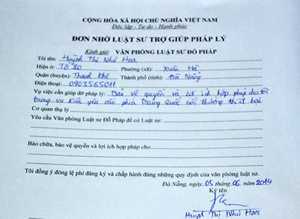 CỘNG HÒA XÃ HỘI CHỦ NGHĨA VIỆT NAM
Độc lập - Tự do - Hạnh phúc
ĐƠN NHỜ LUẬT SƯ TRỢ GIÚP PHÁP LÝ
Kính gửi: VĂN PHÒNG LUẬT SƯ ĐỒ PHÁP
Tôi tên: Huỳnh Thị Như Hoa
Hiện ở: Tổ Phường (xã): Xuân Hà
Quận (huyện): Thanh Khê Thành phố (tỉnh): Đà Nẵng
Điện thoại:
Vụ việc cần giúp đỡ pháp lý: Bảo vệ quyền và lợi ích hợp pháp cho tôi
trong vụ kiện yêu cầu phía Trung Quốc bồi thường thiệt hại
Yêu cầu Văn Phòng Luật sư Đỗ Pháp cử Luật sư:
Bào chữa, bảo vệ quyền và lợi ích hợp pháp cho:
Tôi đồng ý đóng lệ phí đăng ký và chấp hành đúng những quy định của văn phòng luật sư.
Đà Nẵng, ngày 05 tháng 06 năm 2014
Ký tên
Huỳnh Thị Như Hoa